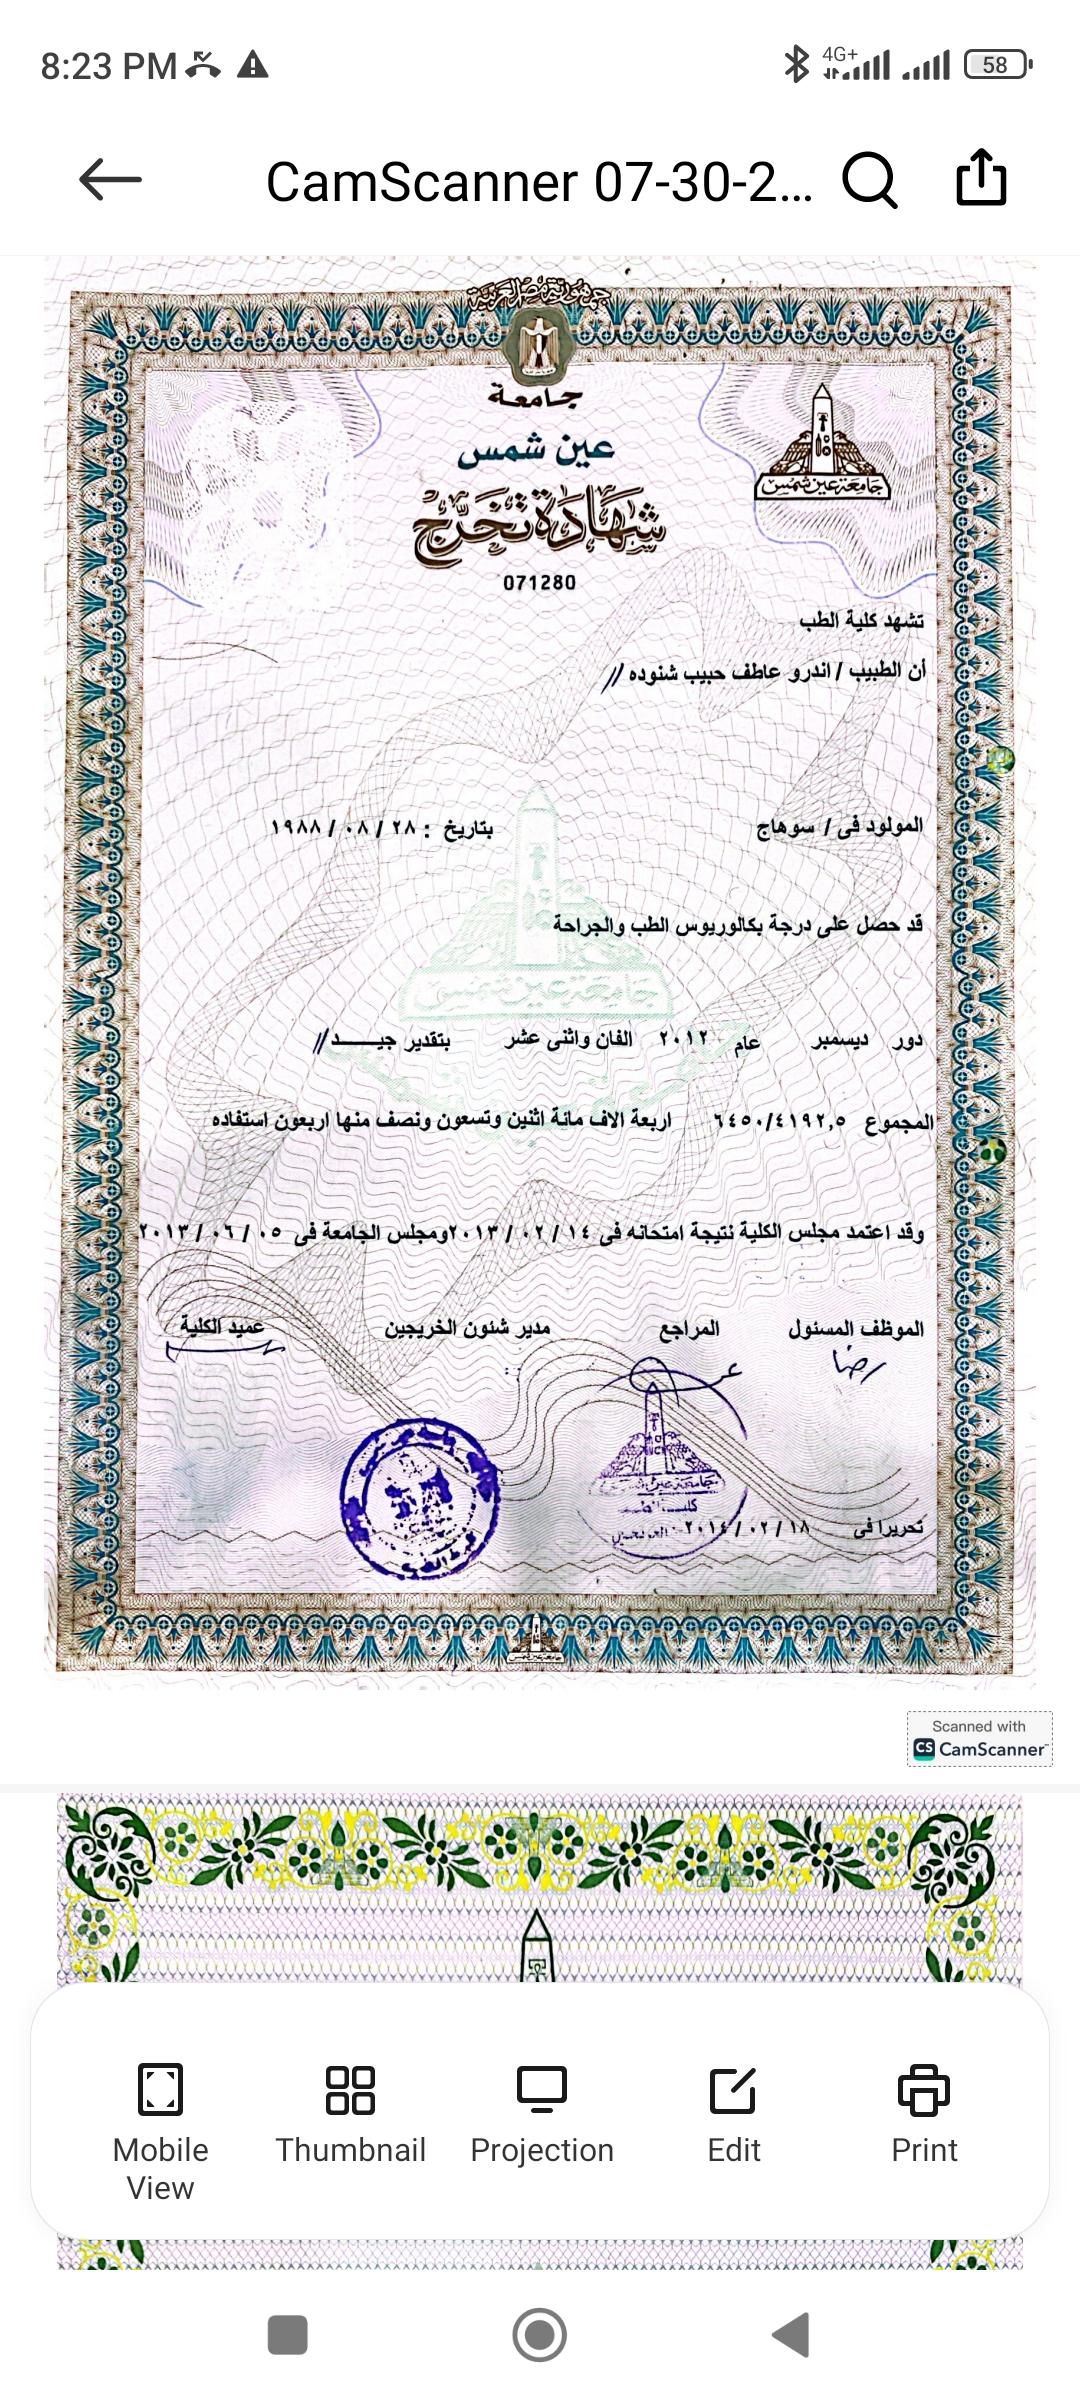 8:23 PM
4G+
58
CamScanner 07-30-2...
جمهورية مصر العربية
جامعة
عين شمس
جامعة عين شمس
شهادة تخرج
071280
تشهد كلية الطب
أن الطبيب / اندرو عاطف حبيب شنوده //
المولود فى / سوهاج بتاريخ : ٢٨ / ٠٨ / ١٩٨٨
قد حصل على درجة بكالوريوس الطب والجراحة
جامعة عين شمس
دور ديسمبر عام ٢٠١٢ الفان واثنى عشر بتقدير جيـــــد //
المجموع ٦٤٥٠/٤١٩٢,٥ اربعة الاف مائة اثنين وتسعون ونصف منها اربعون استفاده
وقد اعتمد مجلس الكلية نتيجة امتحانه فى ١٤ / ٠٢ / ٢٠١٣ومجلس الجامعة فى ٠٥ / ٠٦ / ٢٠١٣
الموظف المسئول المراجع مدير شئون الخريجين عميد الكلية
رضا
جامعة عين شمس
كلية الطب
تحريرا فى ١٨ / ٠٢ / ٢٠١٤
Scanned with
CS CamScanner
Mobile View
Thumbnail
Projection
Edit
Print